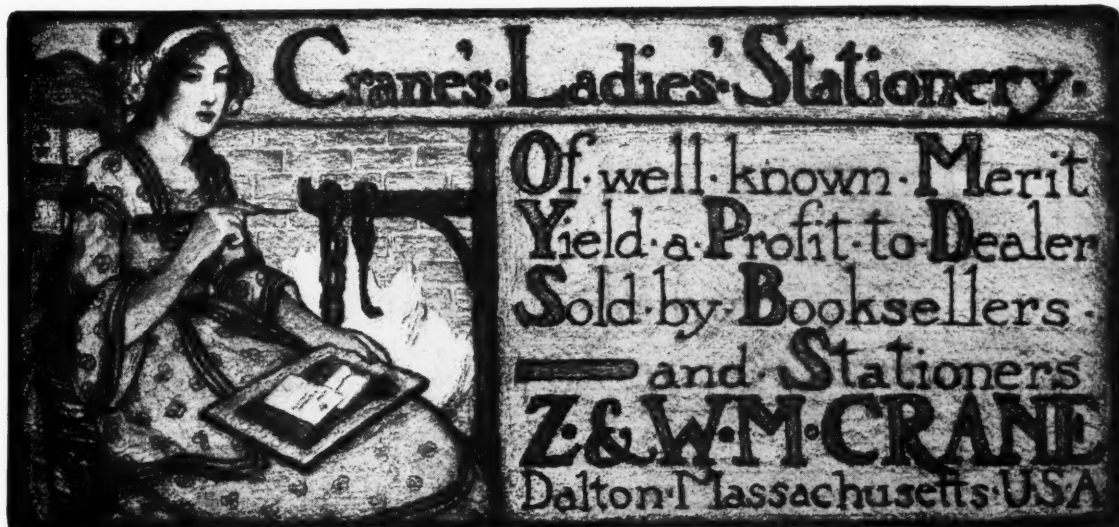 Crane's·Ladies'·Stationery·
Of·well·known·Merit
Yield·a·Profit·to·Dealer
Sold·by·Booksellers·
and·Stationers
Z·&·W·M·CRANE
Dalton·Massachusetts·U·S·A